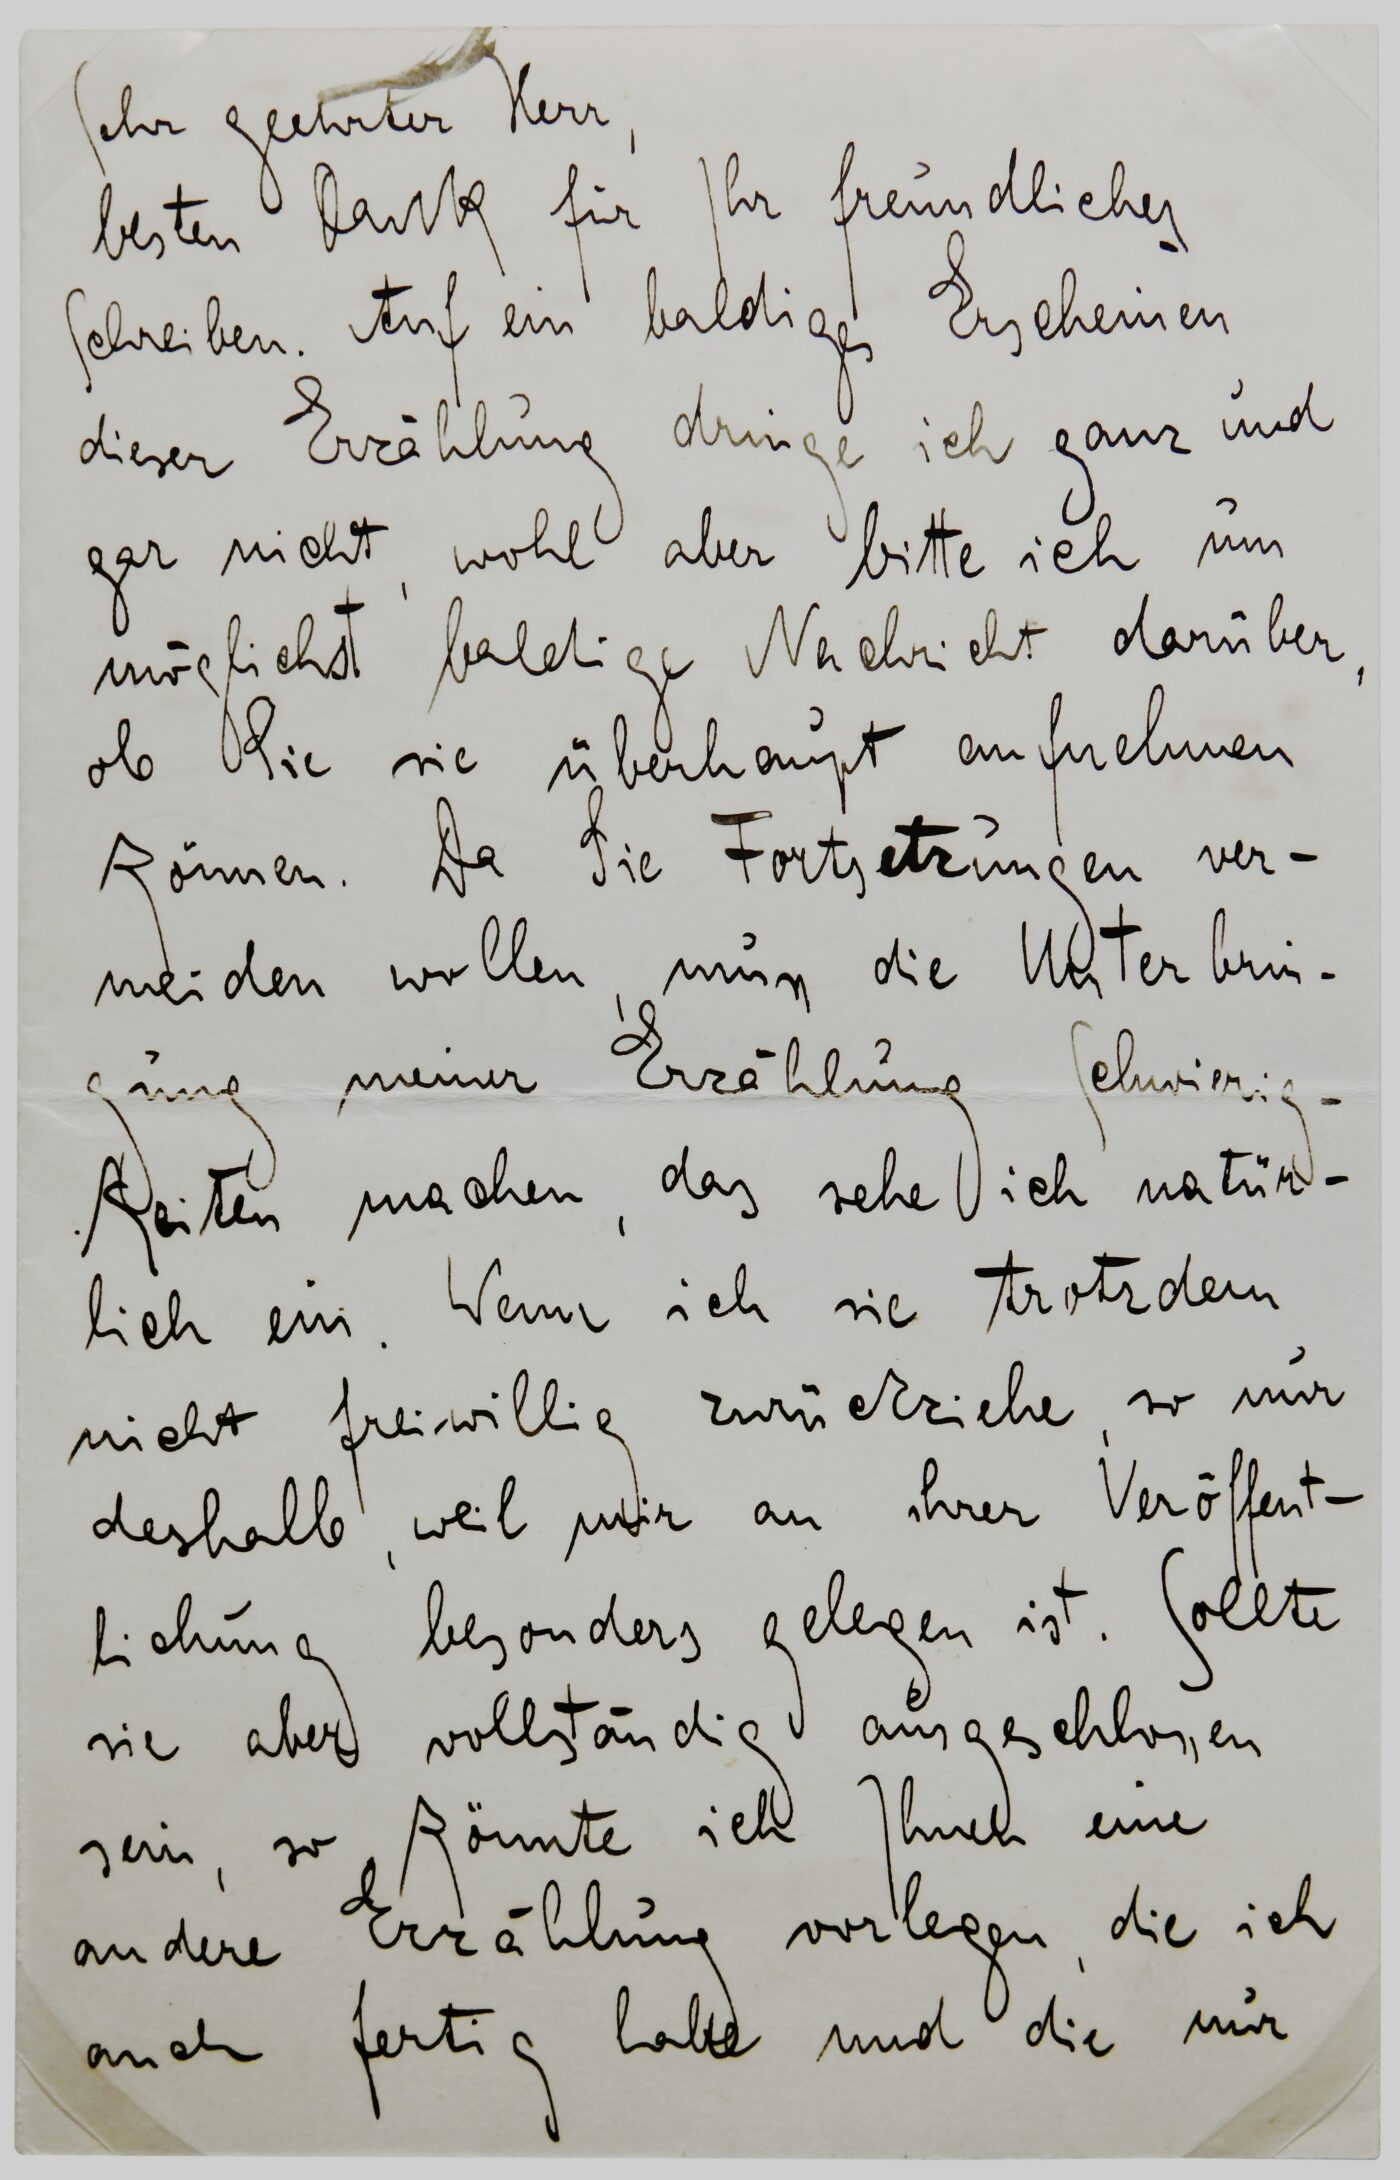 Sehr geehrter Herr,
besten Dank für Ihr freundliches
Schreiben. Auf ein baldiges Erscheinen
dieser Erzählung dringe ich ganz und
gar nicht, wohl aber bitte ich um
möglichst baldige Nachricht darüber,
ob Sie sie überhaupt aufnehmen
können. Da Sie Fortsetzungen ver-
meiden wollen, muß die Unterbrin-
gung meiner Erzählung Schwierig-
keiten machen, das sehe ich natür-
lich ein. Wenn ich sie trotzdem
nicht freiwillig zurückziehe, so nur
deshalb, weil mir an ihrer Veröffent-
lichung besonders gelegen ist. Sollte
sie aber vollständig ausgeschlossen
sein, so könnte ich Ihnen eine
andere Erzählung vorlegen, die ich
auch fertig habe und die nur